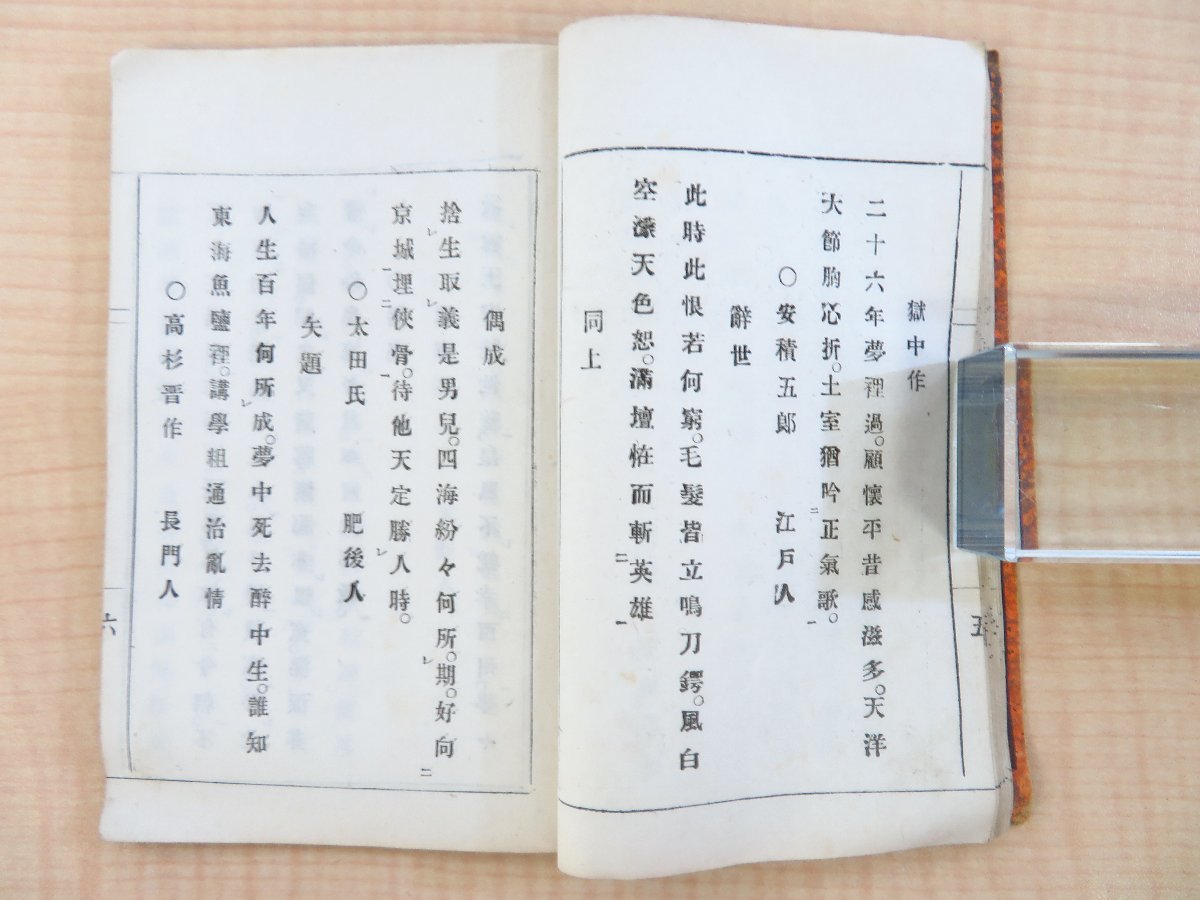 獄中作
二十六年夢裡過。顧懷平昔感滋多。天洋
大節胸芯折。土室猶吟二正氣歌一。
○安積五郎 江戸人
辭世
此時此恨若何窮。毛髮皆立鳴刀鍔。風白
空濛天色恕。滿壇恠而斬二英雄一
同上
五
偶成
捨レ生取レ義是男兒。四海紛々何所レ期。好向二
京城一埋二俠骨一。待他天定勝レ人時。
○太田氏 肥後人
矢題
人生百年何所レ成。夢中死去醉中生。誰知
東海魚鹽裡。講學粗通治亂情
○高杉晋作 長門人
六